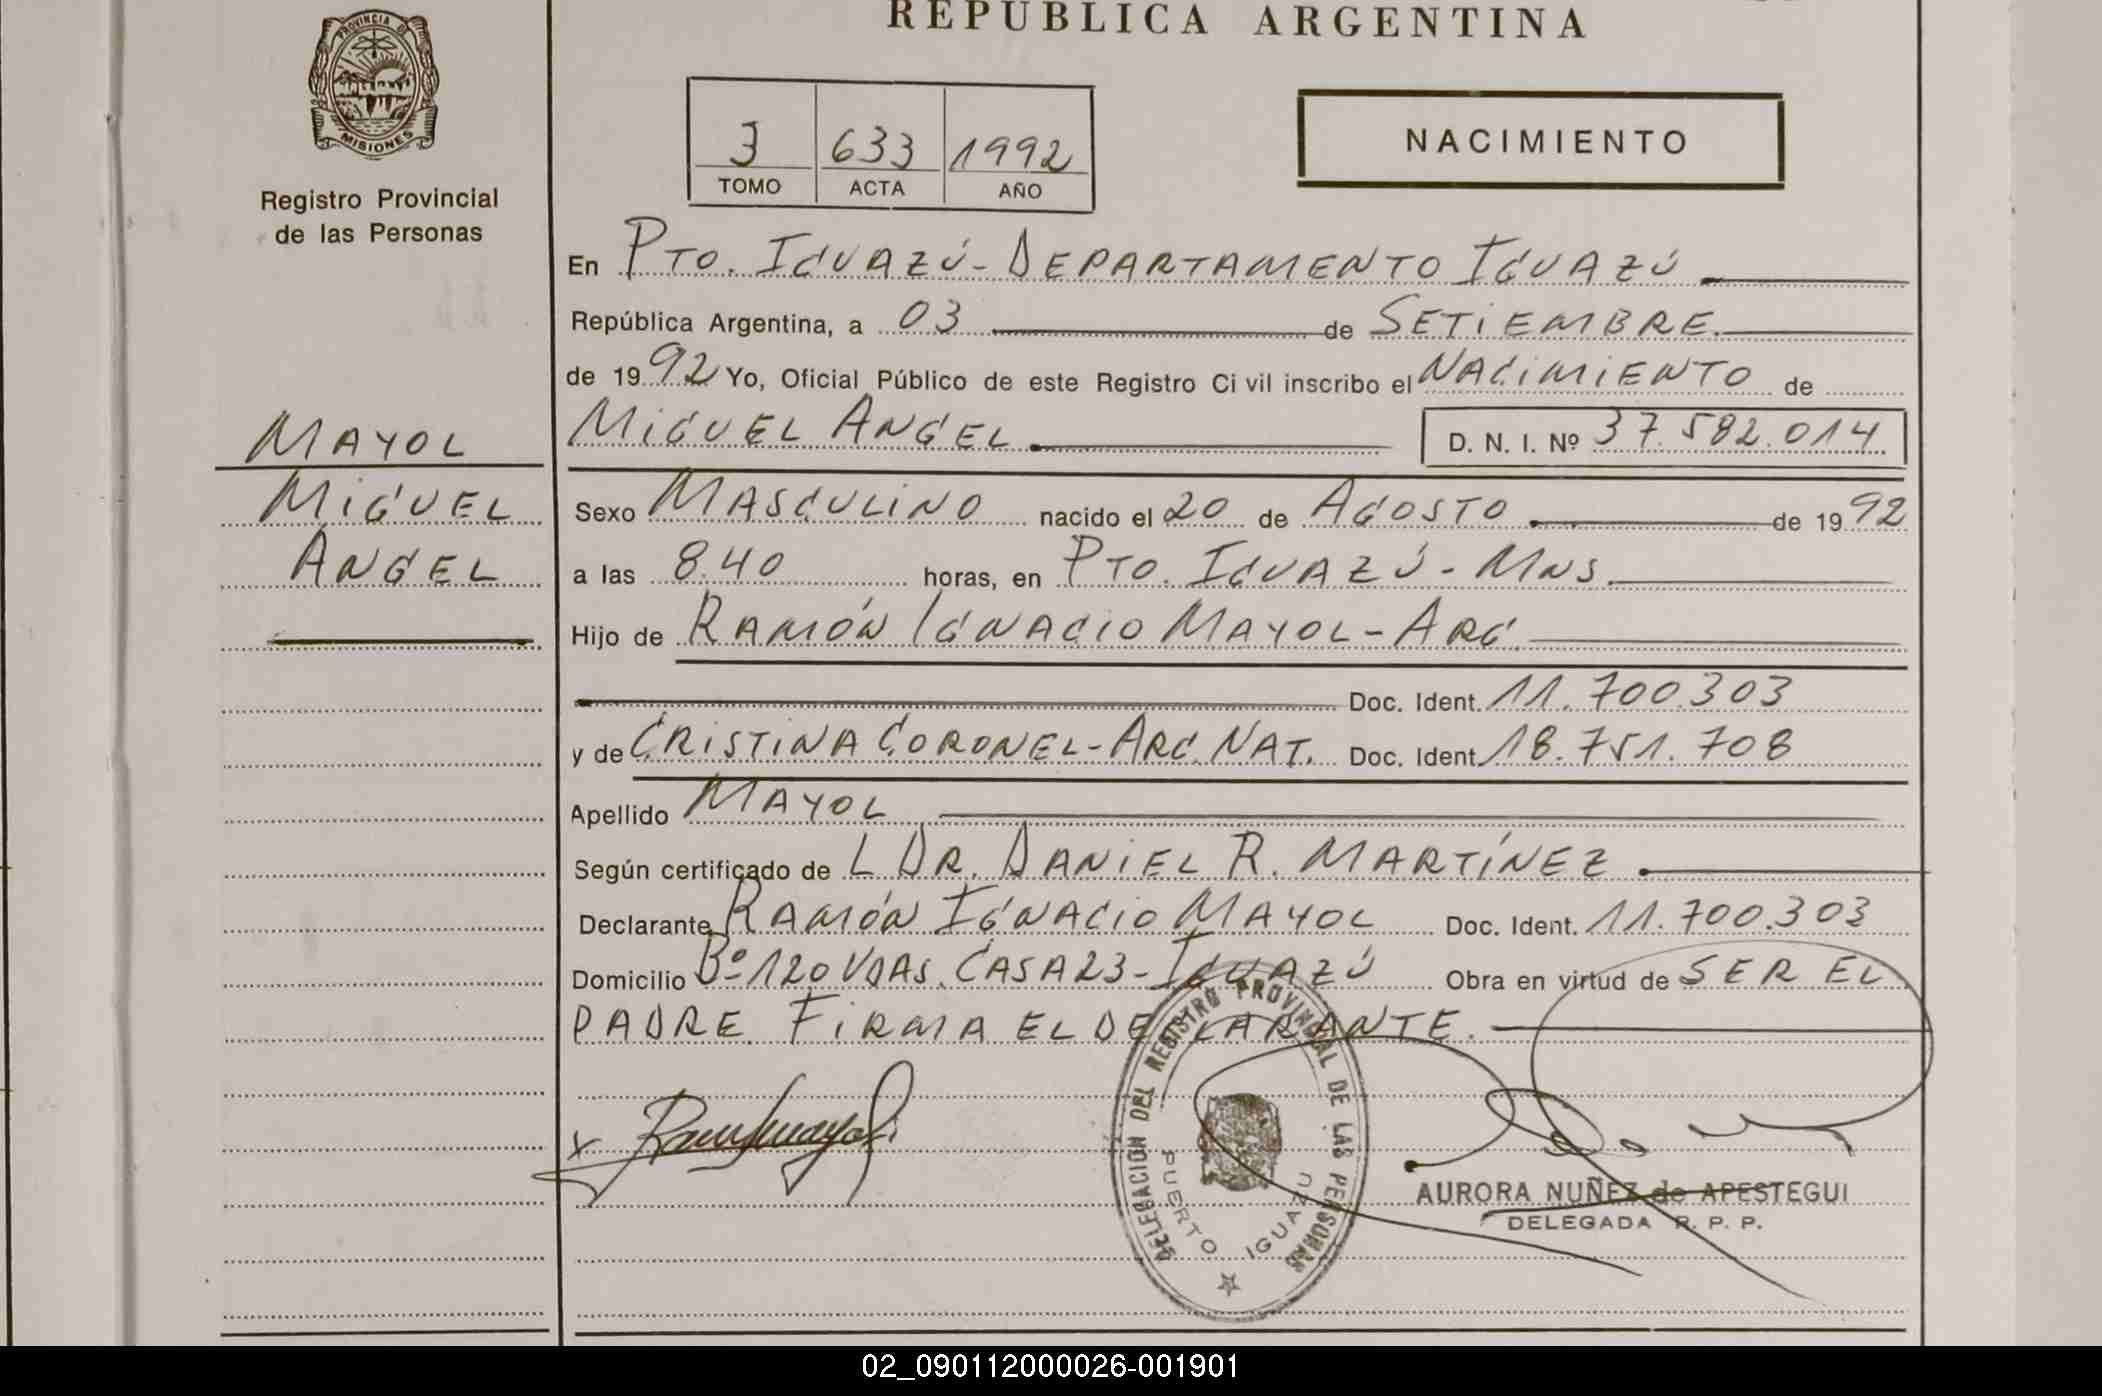 REPUBLICA ARGENTINA
PROVINCIA DE
MISIONES
Registro Provincial
de las Personas
3 633 1992
TOMO ACTA AÑO
NACIMIENTO
En PTO. IGUAZÚ - DEPARTAMENTO IGUAZÚ
República Argentina, a 03 de SETIEMBRE
de 1992 Yo, Oficial Público de este Registro Ci vil inscribo el NACIMIENTO de
MAYOL
MIGUEL ANGEL D. N. I. Nº 37.582.014
MIGUEL
Sexo MASCULINO nacido el 20 de AGOSTO de 1992
ANGEL
a las 8.40 horas, en PTO. IGUAZÚ - MNS.
Hijo de RAMÓN IGNACIO MAYOL - ARG.
Doc. Ident. 11.700.303
y de CRISTINA CORONEL - ARG. NAT. Doc. Ident. 18.751.708
Apellido MAYOL
Según certificado de L DR. DANIEL R. MARTÍNEZ
Declarante RAMÓN IGNACIO MAYOL Doc. Ident. 11.700.303
Domicilio Bº 120 VDAS. CASA 23 - IGUAZÚ Obra en virtud de SER EL
PADRE. FIRMA EL DECLARANTE.
DELEGACION DEL REGISTRO PROVINCIAL DE LAS PERSONAS
PUERTO IGUAZU
X
AURORA NUÑEZ de APESTEGUI
DELEGADA R. P. P.
02_090112000026-001901